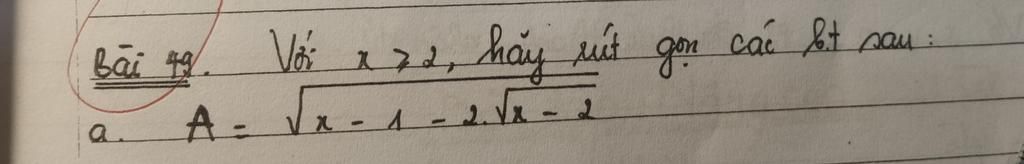 Bài 49. Với x ⩾ 2, hãy rút gọn các bt sau:
a. A = √(x - 1 - 2.√(x - 2))